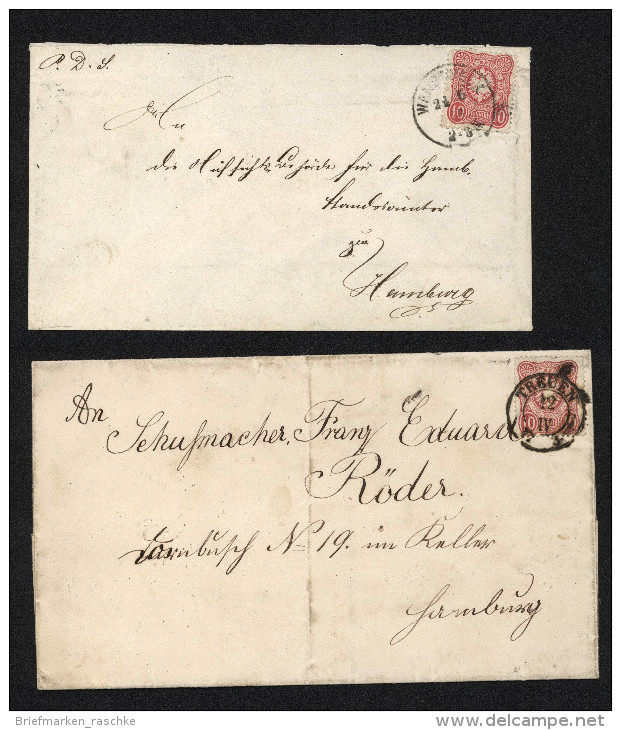 P. D. S.
An
die Aufsichts-Behörde für die Hamb.
Standesämter
zu
Hamburg
10 10
24 6
2-3N
TREUEN
12
IV
10
An
Schuhmacher, Franz Eduard
Röder.
No 19. im Keller
Hamburg
Briefmarken_raschke
www.delcampe.net